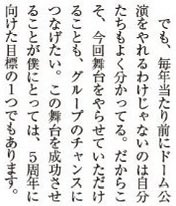 でも、毎年当たり前にドーム公
演をやれるわけじゃないのは自分
たちもよく分かってる。だからこ
そ、今回舞台をやらせていただけ
ることも、グループのチャンスに
つなげたい。この舞台を成功させ
ることが僕にとっては、5周年に
向けた目標の1つでもあります。